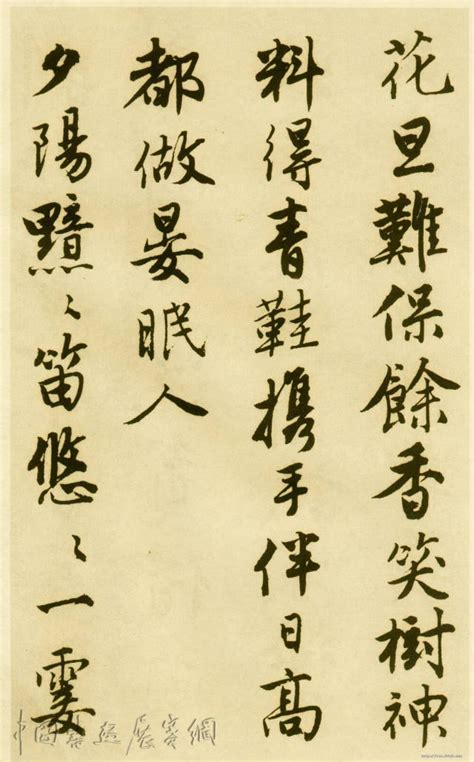 花旦難保餘香笑樹神
料得青鞋携手伴日高
都做晏眠人
夕陽黯〻笛悠〻一霎
中國書法展賽網